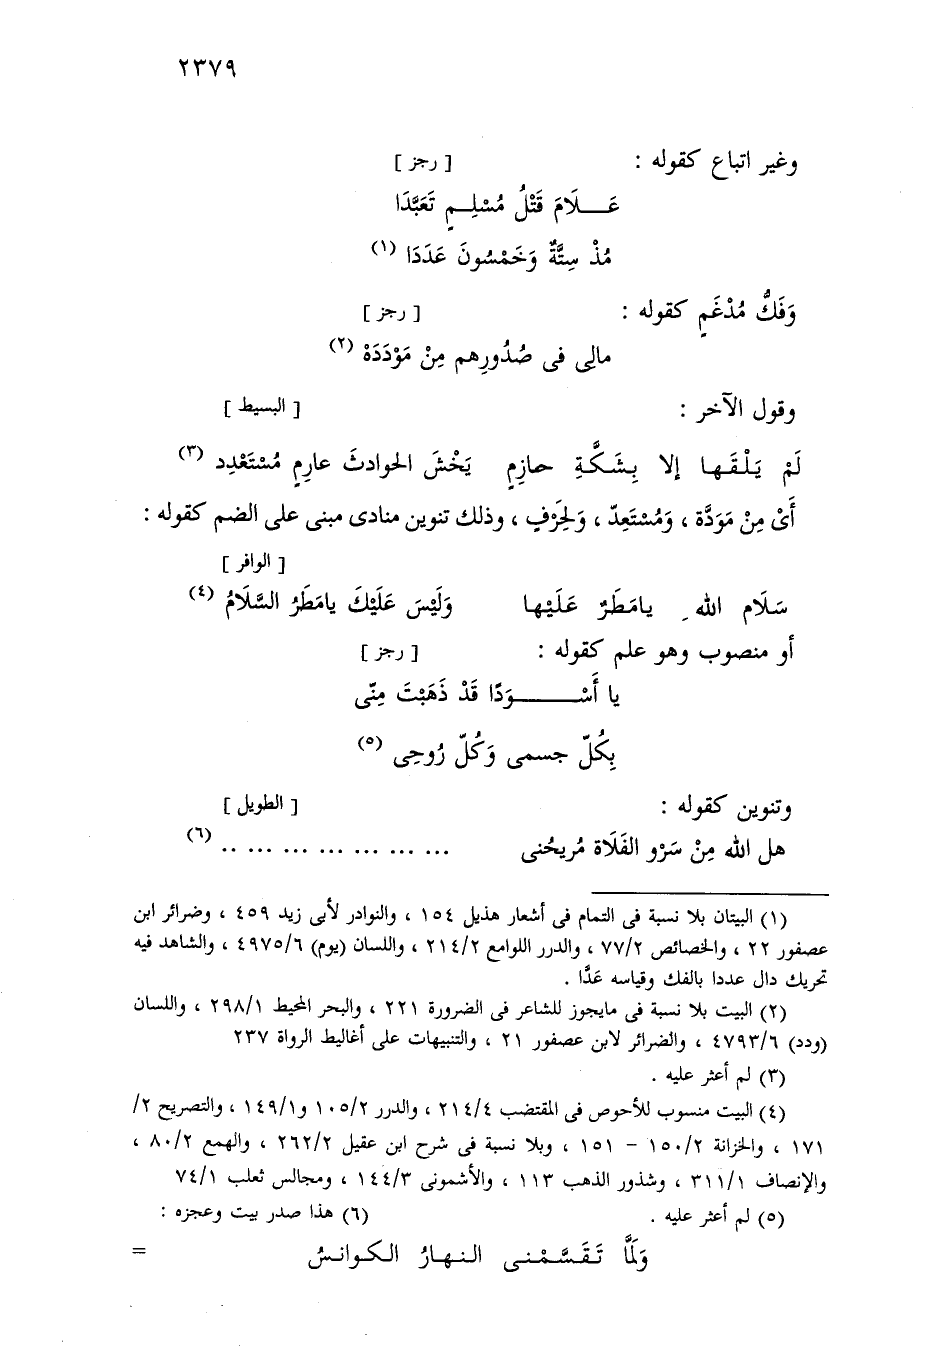 ٢٣٧٩
وغير اتباع كقوله : [ رجز ]
عَــلَامَ قَتْلُ مُسْلِـمٍ تَعَبَّدَا
مُذْ سِتَّةٌ وَخَمْسُونَ عَدَدَا (١)
وَفَكُّ مُدْغَمٍ كقوله : [ رجز ]
مالِى فى صُدُورِهم مِنْ مَوْدَدَهْ (٢)
وقول الآخر : [ البسيط ]
لَمْ يَلْقَـها إلا بِشَكَّةِ حازِمٍ يَخْشَ الحوادثَ عازِمٍ مُسْتَعْدِد (٣)
أَىْ مِنْ مَوَدَّة ، وَمُسْتَعِدّ ، وَلِحَرْفٍ ، وذلك تنوين منادى مبنى على الضم كقوله :
[ الوافر ]
سَلَام الله ِ يامَطَرٌ عَلَيْها وَلَيْسَ عَلَيْكَ يامَطَرُ السَّلَامُ (٤)
أو منصوب وهو علم كقوله : [ رجز ]
يا أَسْـــــوَدًا قَدْ ذَهَبْتَ مِنّى
بِكُلّ جسمى وَكُلّ رُوحِى (٥)
وتنوين كقوله : [ الطويل ]
هل الله مِنْ سَرْو الفَلَاة مُريحُنى ... ... ... ... ... ... .. (٦)
(١) البيتان بلا نسبة فى التمام فى أشعار هذيل ١٥٤ ، والنوادر لأبى زيد ٤٥٩ ، وضرائر ابن
عصفور ٢٢ ، والخصائص ٧٧/٢ ، والدرر اللوامع ٢١٤/٢ ، واللسان (يوم) ٤٩٧٥/٦ ، والشاهد فيه
تحريك دال عددا بالفك وقياسه عَدًّا .
(٢) البيت بلا نسبة فى مايجوز للشاعر فى الضرورة ٢٢١ ، والبحر المحيط ٢٩٨/١ ، واللسان
(ودد) ٤٧٩٣/٦ ، والضرائر لابن عصفور ٢١ ، والتنبيهات على أغاليط الرواة ٢٣٧
(٣) لم أعثر عليه .
(٤) البيت منسوب للأحوص فى المقتضب ٢١٤/٤ ، والدرر ١٠٥/٢ و١٤٩/١ ، والتصريح ٢/
١٧١ ، والخزانة ١٥٠/٢ - ١٥١ ، وبلا نسبة فى شرح ابن عقيل ٢٦٢/٢ ، والهمع ٨٠/٢ ،
والإنصاف ٣١١/١ ، وشذور الذهب ١١٣ ، والأشمونى ١٤٤/٣ ، ومجالس ثعلب ٧٤/١
(٥) لم أعثر عليه . (٦) هذا صدر بيت وعجزه :
وَلَمَّا تَقَسَّمْنى النهارُ الكوانسُ =